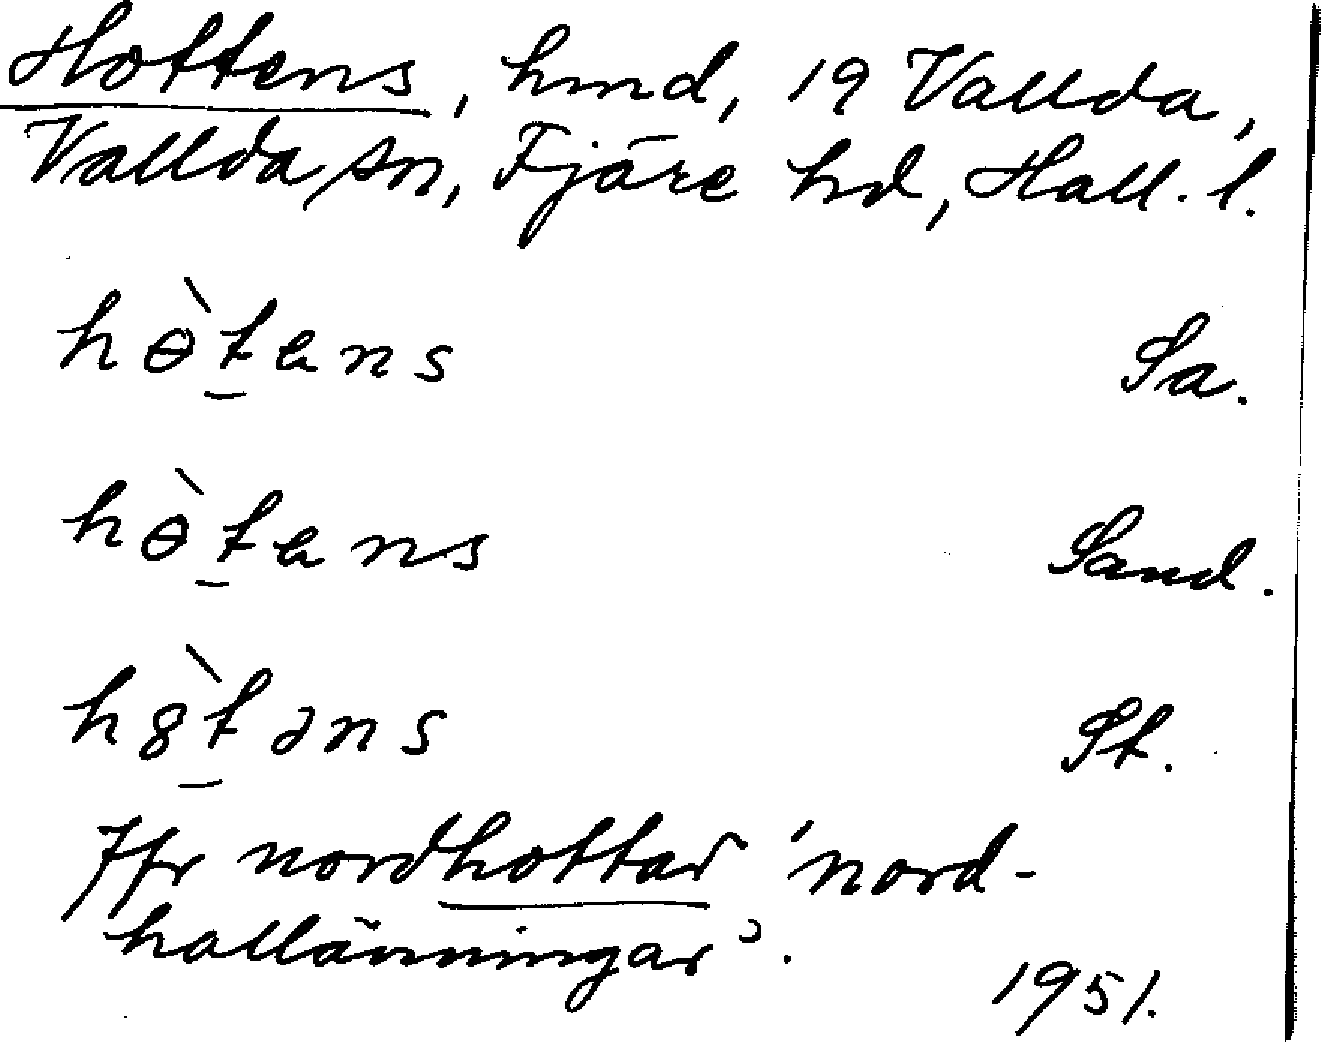 Hottens, hmd, 19 Vallda,
Vallda sn, Fjäre hd, Hall. l.
hɵ̀t̲ans Sa.
hɵ̀t̲ans Sand.
h8̀t̲əns St.
Jfr nordhottar 'nord-
hallänningar'.
1951.